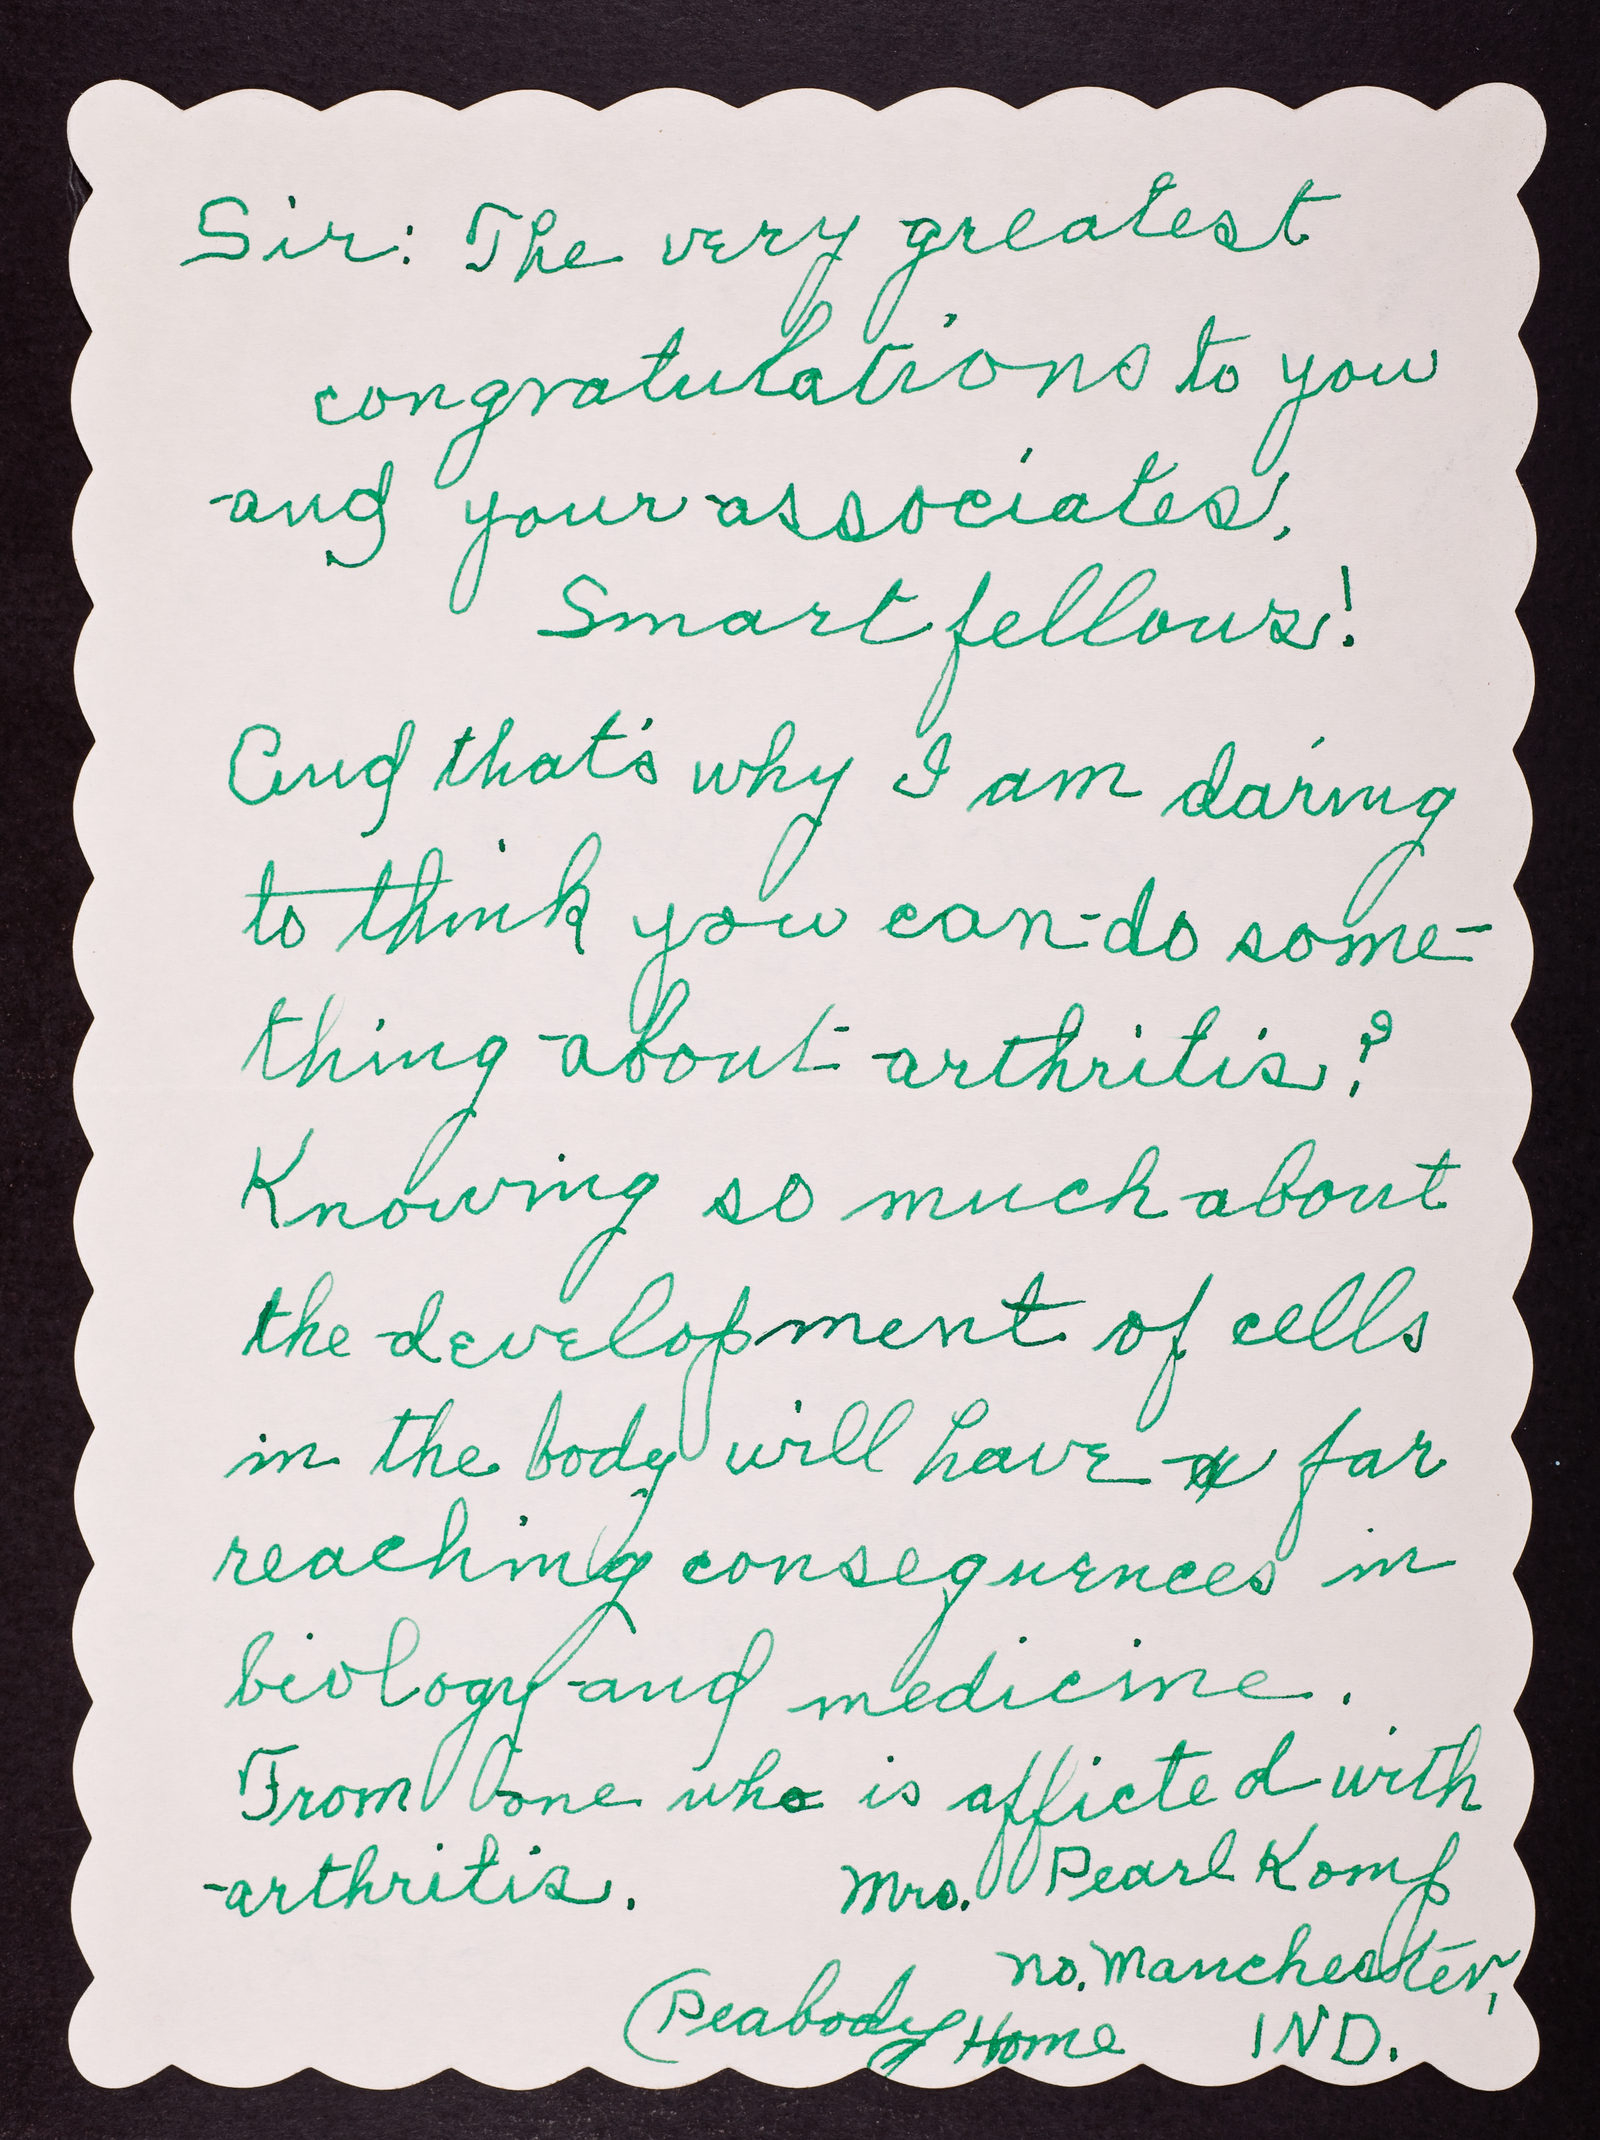 Sir: The very greatest
congratulations to you
and your associates,
Smart fellows!
And that's why I am daring
to think you can do some-
thing about arthritis?
Knowing so much about
the development of cells
in the body will have a far
reaching consequences in
biology and medicine.
From one who is afflicted with
arthritis. Mrs. Pearl Komp
no. Manchester,
(Peabody Home IND.